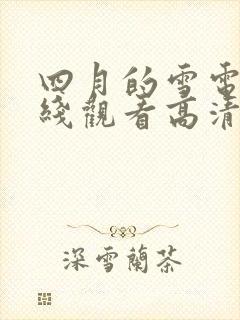 四月的雪電
綫觀看高清
深雪蘭茶